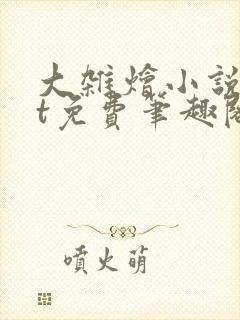 大雜燴小說
t免費筆趣閣
噴火萌